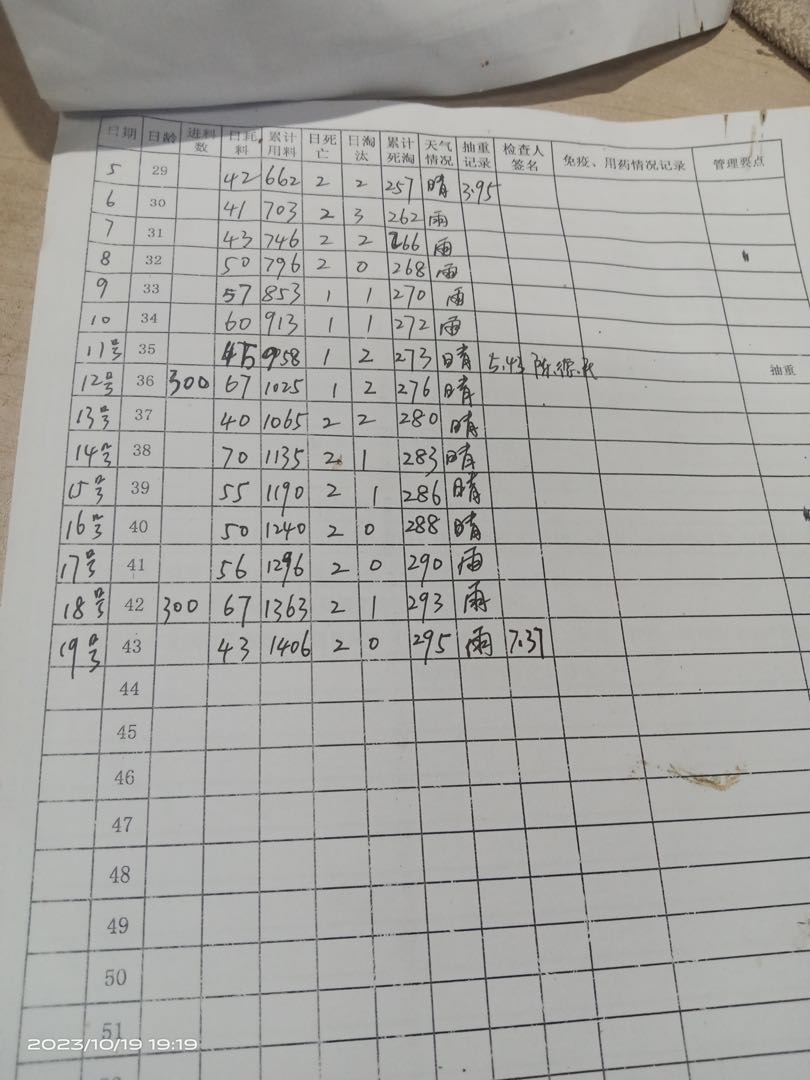 日期 日龄 进料数 日耗料 累计用料 日死亡 日淘汰 累计死淘 天气情况 抽重记录 检查人签名 免疫、用药情况记录 管理要点
5 29 42 662 2 2 257 晴 3.95
6 30 41 703 2 3 262 雨
7 31 43 746 2 2 266 雨
8 32 50 796 2 0 268 雨
9 33 57 853 1 1 270 雨
10 34 60 913 1 1 272 雨
11号 35 45 958 1 2 273 晴 5.43 陈 抽重
12号 36 300 67 1025 1 2 276 晴
13号 37 40 1065 2 2 280 晴
14号 38 70 1135 2 1 283 晴
15号 39 55 1190 2 1 286 晴
16号 40 50 1240 2 0 288 晴
17号 41 56 1296 2 0 290 雨
18号 42 300 67 1363 2 1 293 雨
19号 43 43 1406 2 0 295 雨 7.37
44
45
46
47
48
49
50
51
2023/10/19 19:19